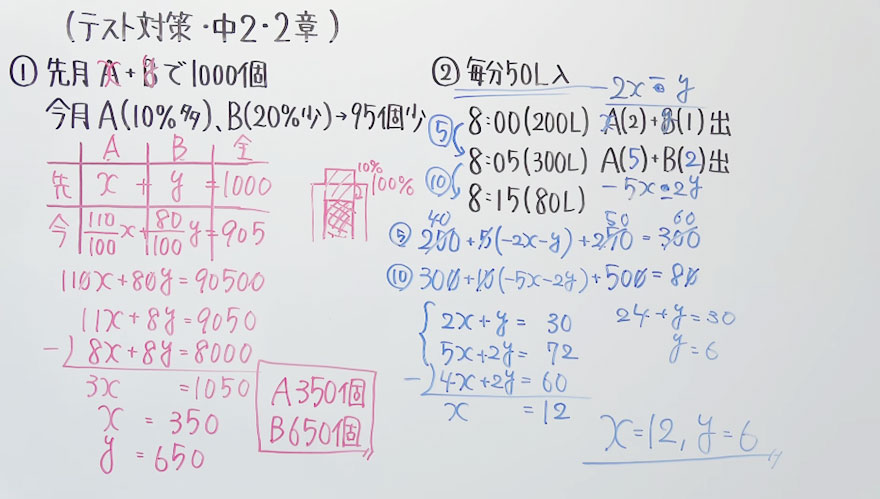 (テスト対策・中2・2章)
① 先月 A + B で1000個
今月 A(10%多)、B(20%少)→95個少
A B 全
先 x + y =1000
今 110/100 x + 80/100 y = 905
10%
100%
110x+80y=90500
11x+8y=9050
-) 8x+8y=8000
3x =1050
x = 350
y = 650
A350個
B650個
② 毎分50L入
-2x-y
⑤ 8:00(200L) A(2)+B(1)出
8:05(300L) A(5)+B(2)出
⑩ -5x-2y
8:15(80L)
40 50 60
⑤ 200+5(-2x-y)+250=300
⑩ 300+10(-5x-2y)+500=80
2x+y= 30
5x+2y= 72
-) 4x+2y= 60
x =12
24+y=30
y=6
x=12, y=6